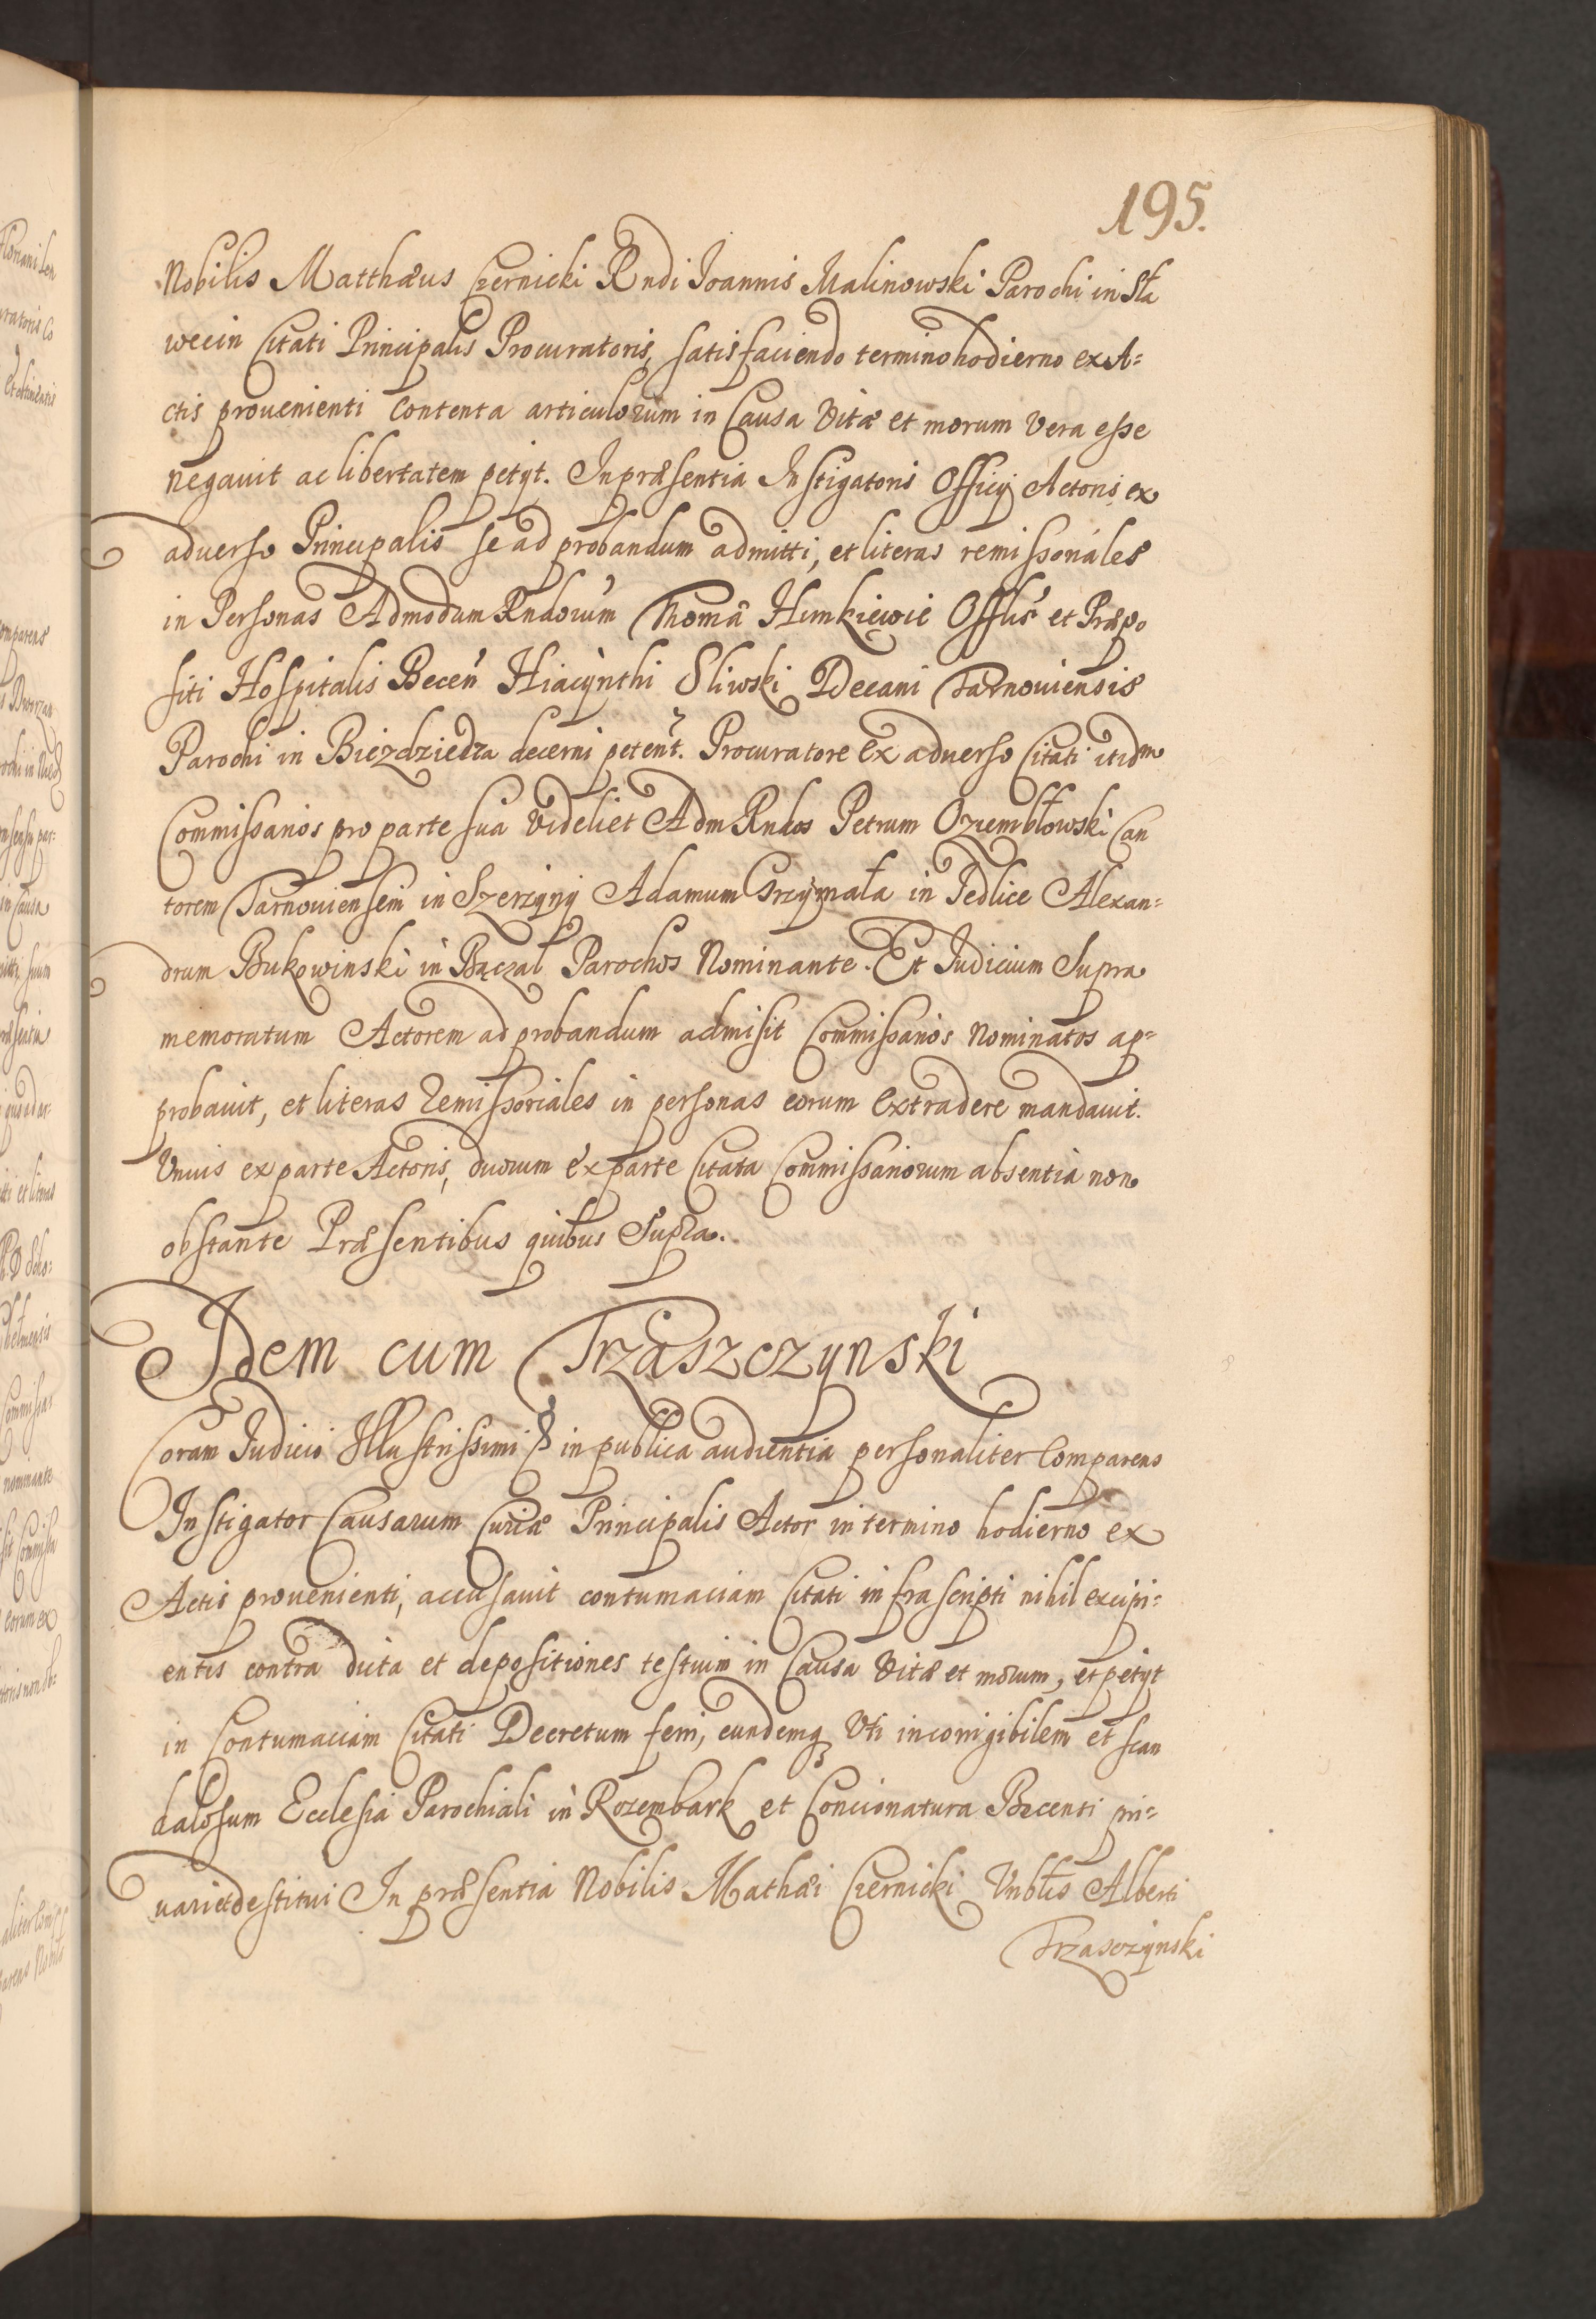 195.
Nobilis Matthæus Czernicki Rndi Joannis Malinowski Parochi in Sła
wecin Citati Principalis Procuratoris, satisfaciendo termino hodierno ex A=
ctis prouenienti Contenta articulorum in Causa Vitæ et morum Vera esse
negauit ac libertatem petyt. In præsentia Instigatoris Officij Actoris ex
aduerso Principalis se ad probandum admitti, et literas remissonáles
in Personas Admodum Rndorum Thomæ Offlis et Præpo
siti Hospitalis Becen Hiacynthi Sliwski Decani Tarnouiensis
Parochi in Bieździedza decerni petent. Procuratore ex aduerso Citati itidm
Commissarios pro parte sua Videliet Adm Rndos Petrum Oziembłowski Can
torem Tarnouiensem in Szerzyny Adamum Grzymała in Jedlice Alexan=
drum Bukowinski in Bączal Parochos Nominante. Et Judicium Supra
memoratum Actorem ad probandum admisit Commissarios Nominatos ap=
probauit, et literas remissoriales in personas eorum extradere mandauit.
Vnius ex parte Actoris, duorum ex parte Citata Commissariorum absentia non
obstante Præsentibus quibus Supra.
Idem cum Trzaszczynski
Coram Judicio Illustrissimi in publica audientia personaliter Comparens
Instigator Causarum Curiæ Principalis Actor in termino hodierno ex
Actis prouenienti, accusauit contumaciam Citati infrascripti nihil excipi=
entis contra dicta et depositiones testium in Causa Vitæ et morum, et petyt
in Contumaciam Citati Decretum ferri, eundemq Vti incorrigibilem et scan
dalosum Ecclesia Parochiali in Rozembark et Concionatura Becensi pri=
uari et destitui In præsentia Nobilis Mathæi Czernicki Vnblis Alberti
Trzasczynski